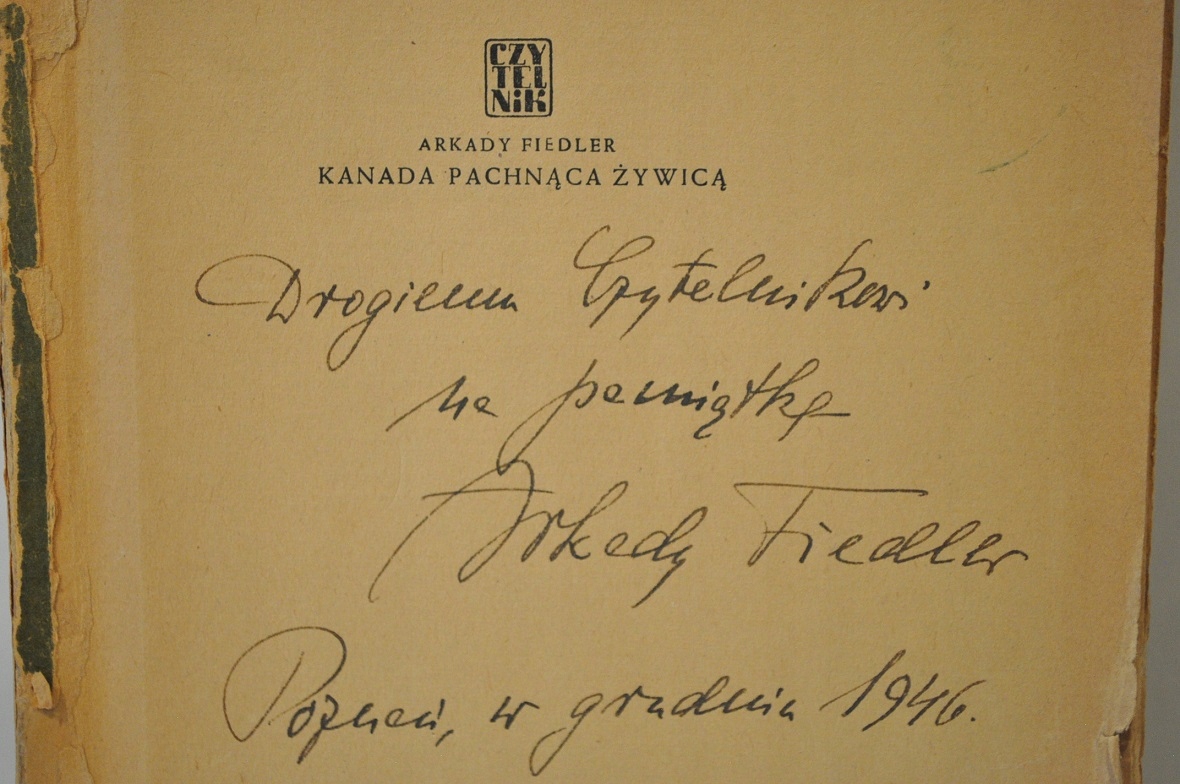 CZY
TEL
NiK
ARKADY FIEDLER
KANADA PACHNĄCA ŻYWICĄ
Drogiemu Czytelnikowi
na pamiątkę
Arkady Fiedler
Poznań, w grudniu 1946.